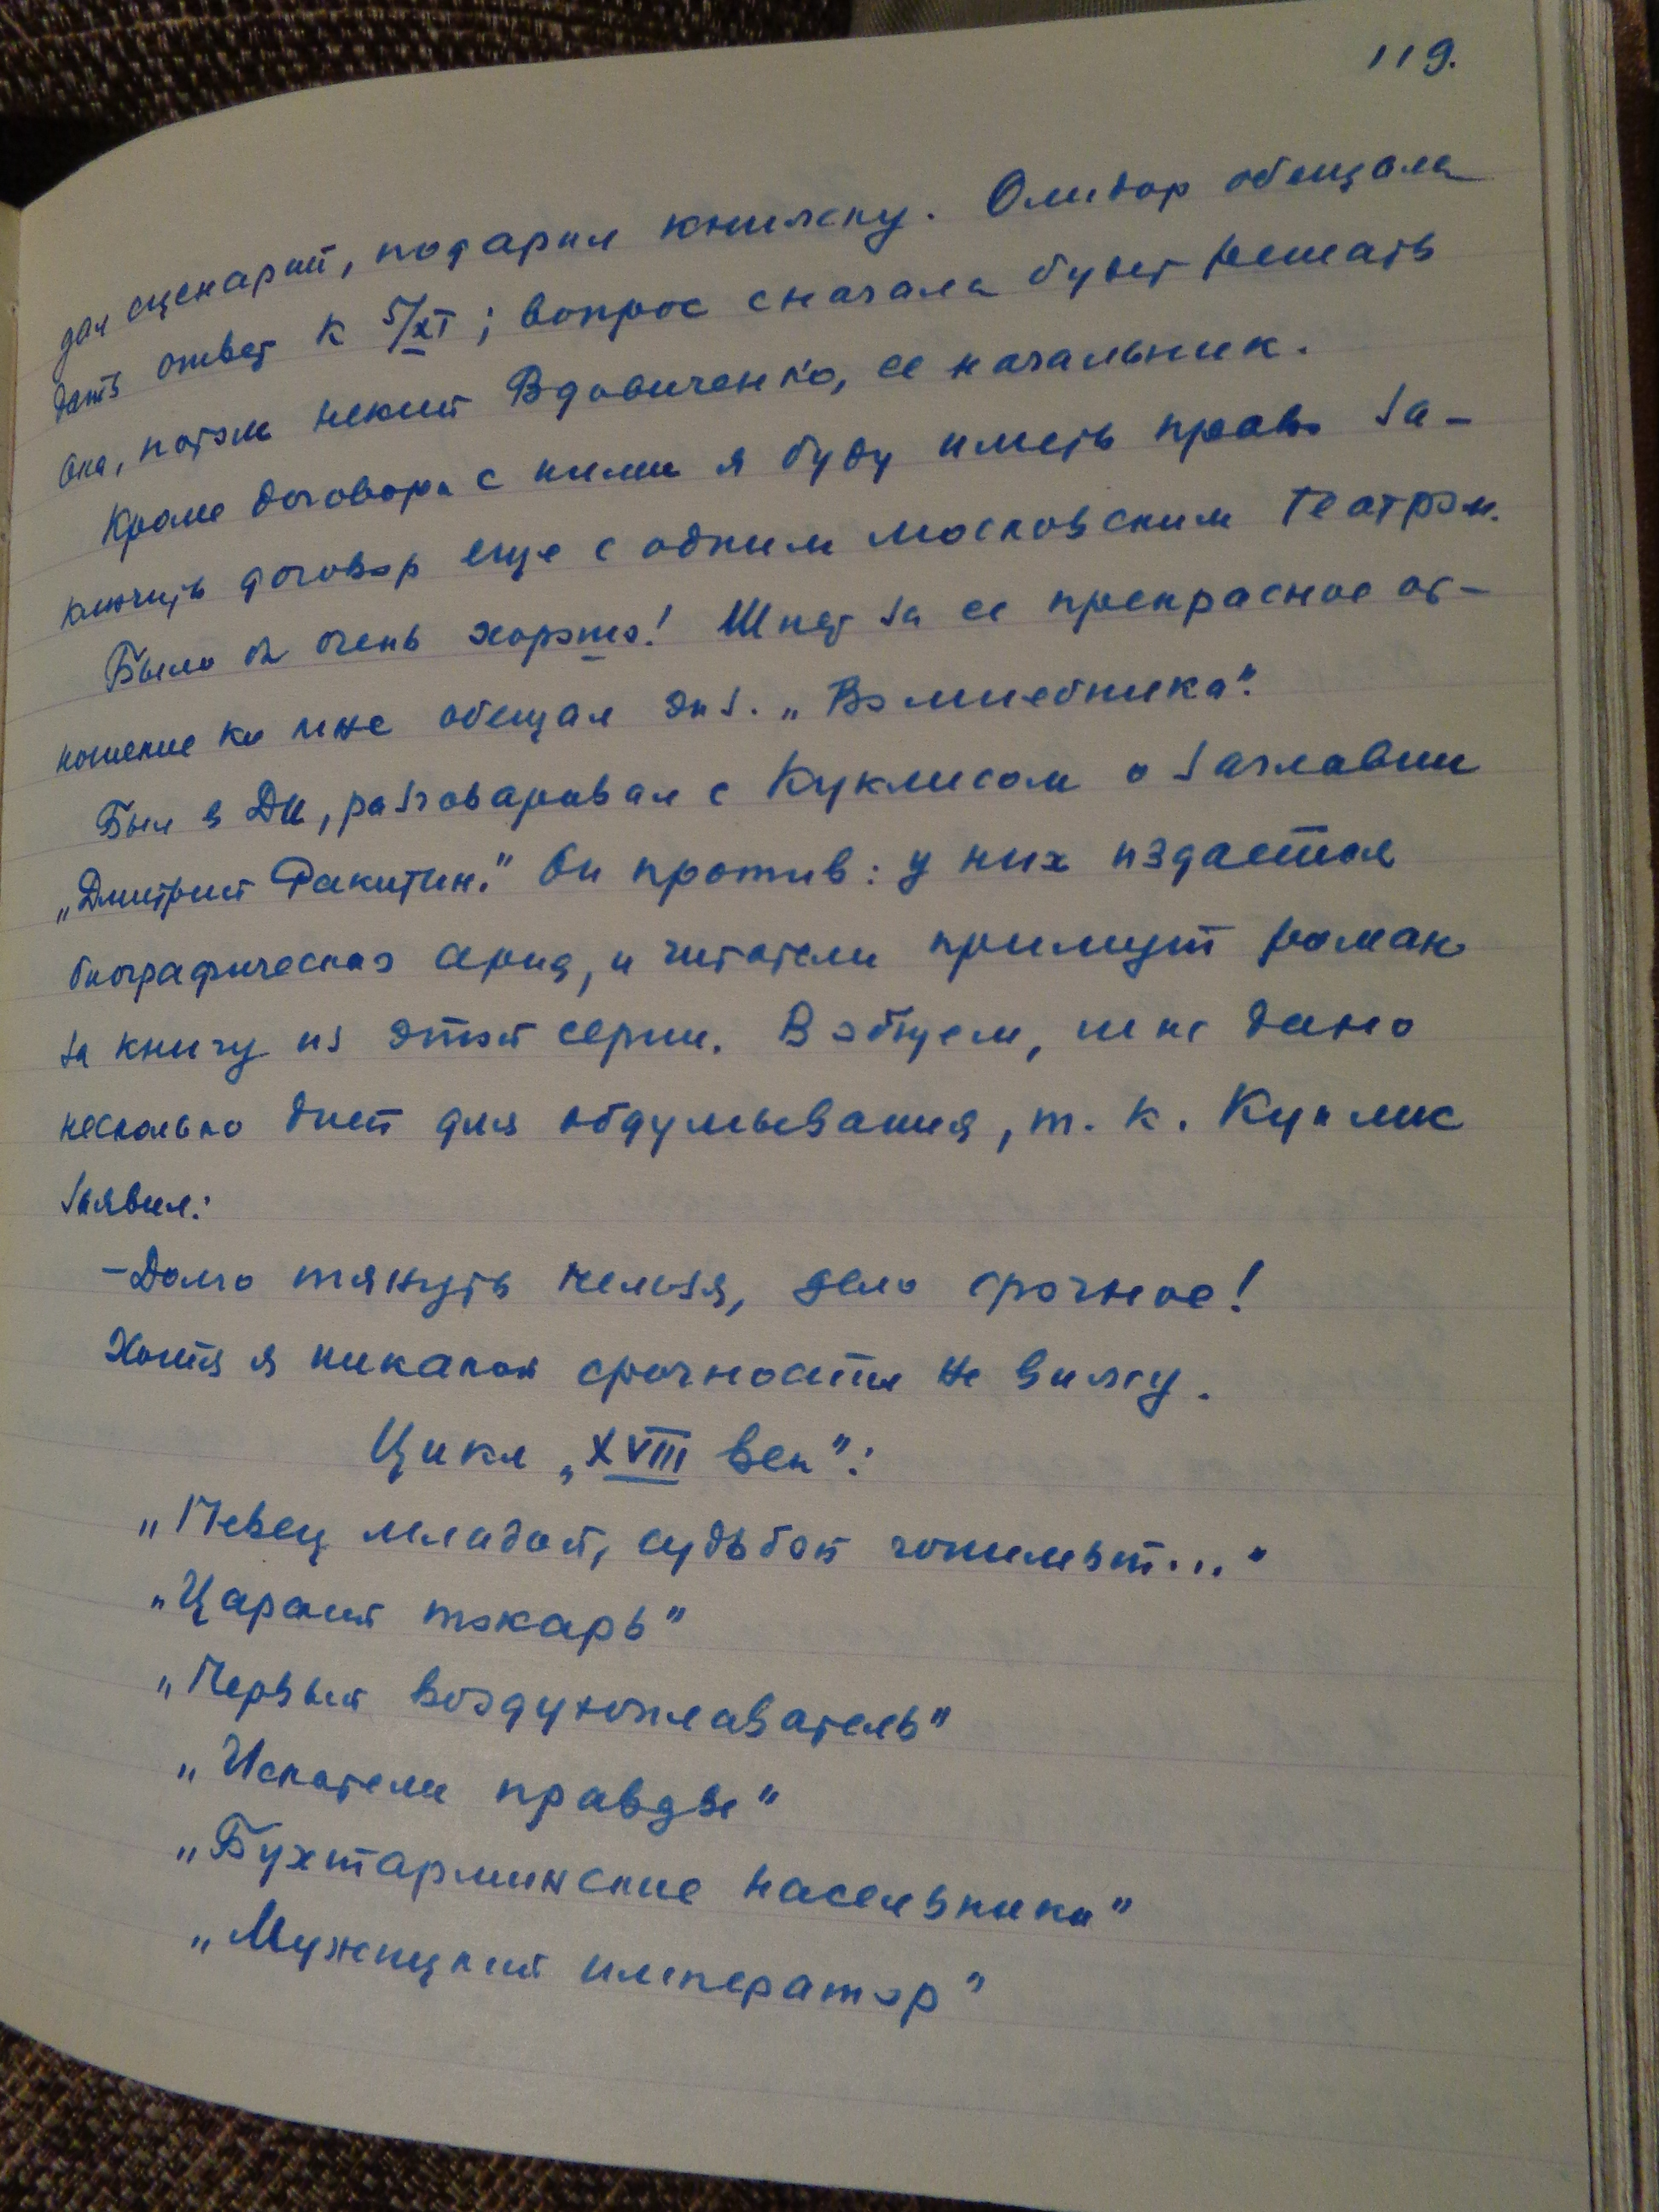 119.
дал сценарий, подарил книжку. Олидор обещала
дать ответ к 5/XI; вопрос сначала будет решать
она, потом некий Вдовиченко, ее начальник.
Кроме договора с ними я буду иметь право за-
ключить договор еще с одним московским театром.
Было бы очень хорошо! Шпет за ее прекрасное от-
ношение ко мне обещал экз. „Волшебника".
Был в ДИ, разговаривал с Куклисом о заглавии
„Дмитрий Ракитин." Он против: у них издается
биографическая серия, и читатели примут роман
за книгу из этой серии. В общем, мне дано
несколько дней для обдумывания, т. к. Куклис
заявил:
—Долго тянуть нельзя, дело срочное!
Хотя я никакой срочности не вижу.
Цикл „XVIII век":
„Певец младой, судьбой гонимый..."
„Царский токарь"
„Первый воздухоплаватель"
„Искатели правды"
„Бухтарминские насельники"
„Мужицкий император"